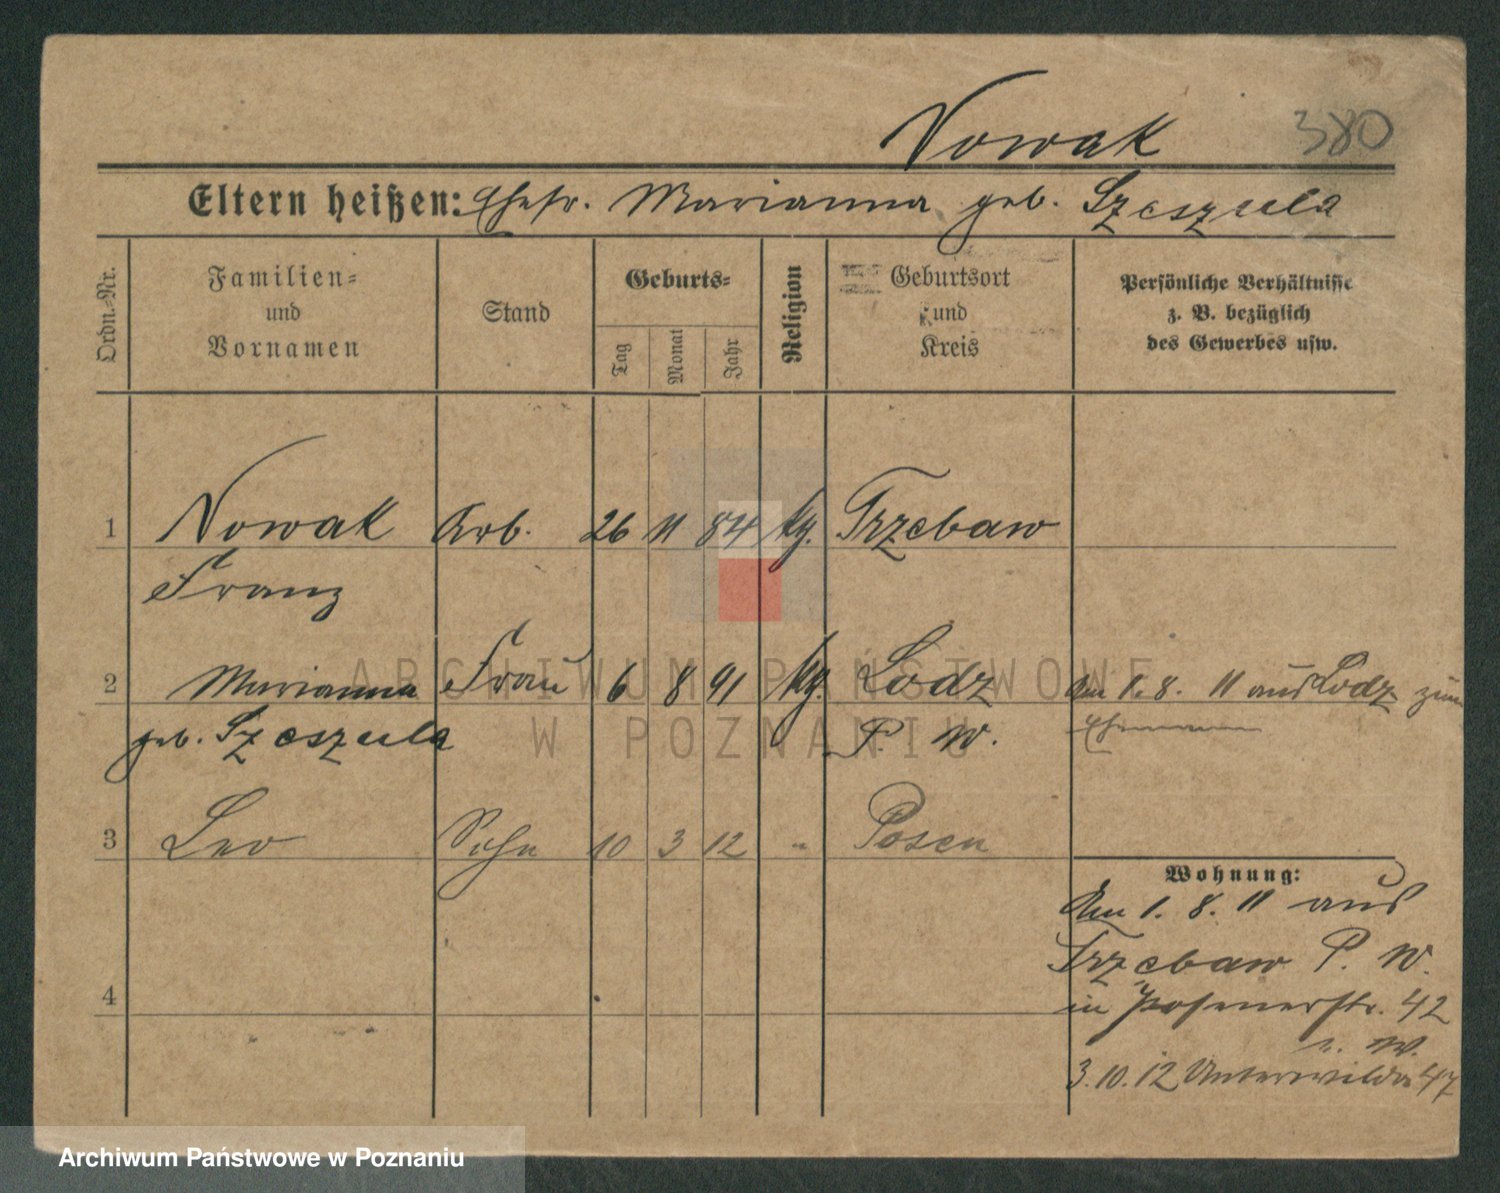 Nowak 380
Eltern heißen: Ehefr. Marianna geb. Szeszula
Ordn.-Nr.
Familien- und Vornamen
Stand
Geburts-
Tag
Monat
Jahr
Religion
Geburtsort und Kreis
Persönliche Verhältnisse
z. B. bezüglich
des Gewerbes usw.
1 Nowak Arb. 26 11 84 kg. Trzebaw
Franz
2 Marianna Frau 6 8 91 kg. Lodz Am 1. 8. 11 aus Lodz zum
geb. Szeszula P. W. Ehemann
3 Leo Sohn 10 3 12 " Posen
Wohnung:
Am 1. 8. 11 aus
Trzebaw P. W.
4
in Posenerstr. 42
3.10.12 Unterwilda 47
ARCHIWUM PAŃSTWOWE
W POZNANIU
Archiwum Państwowe w Poznaniu